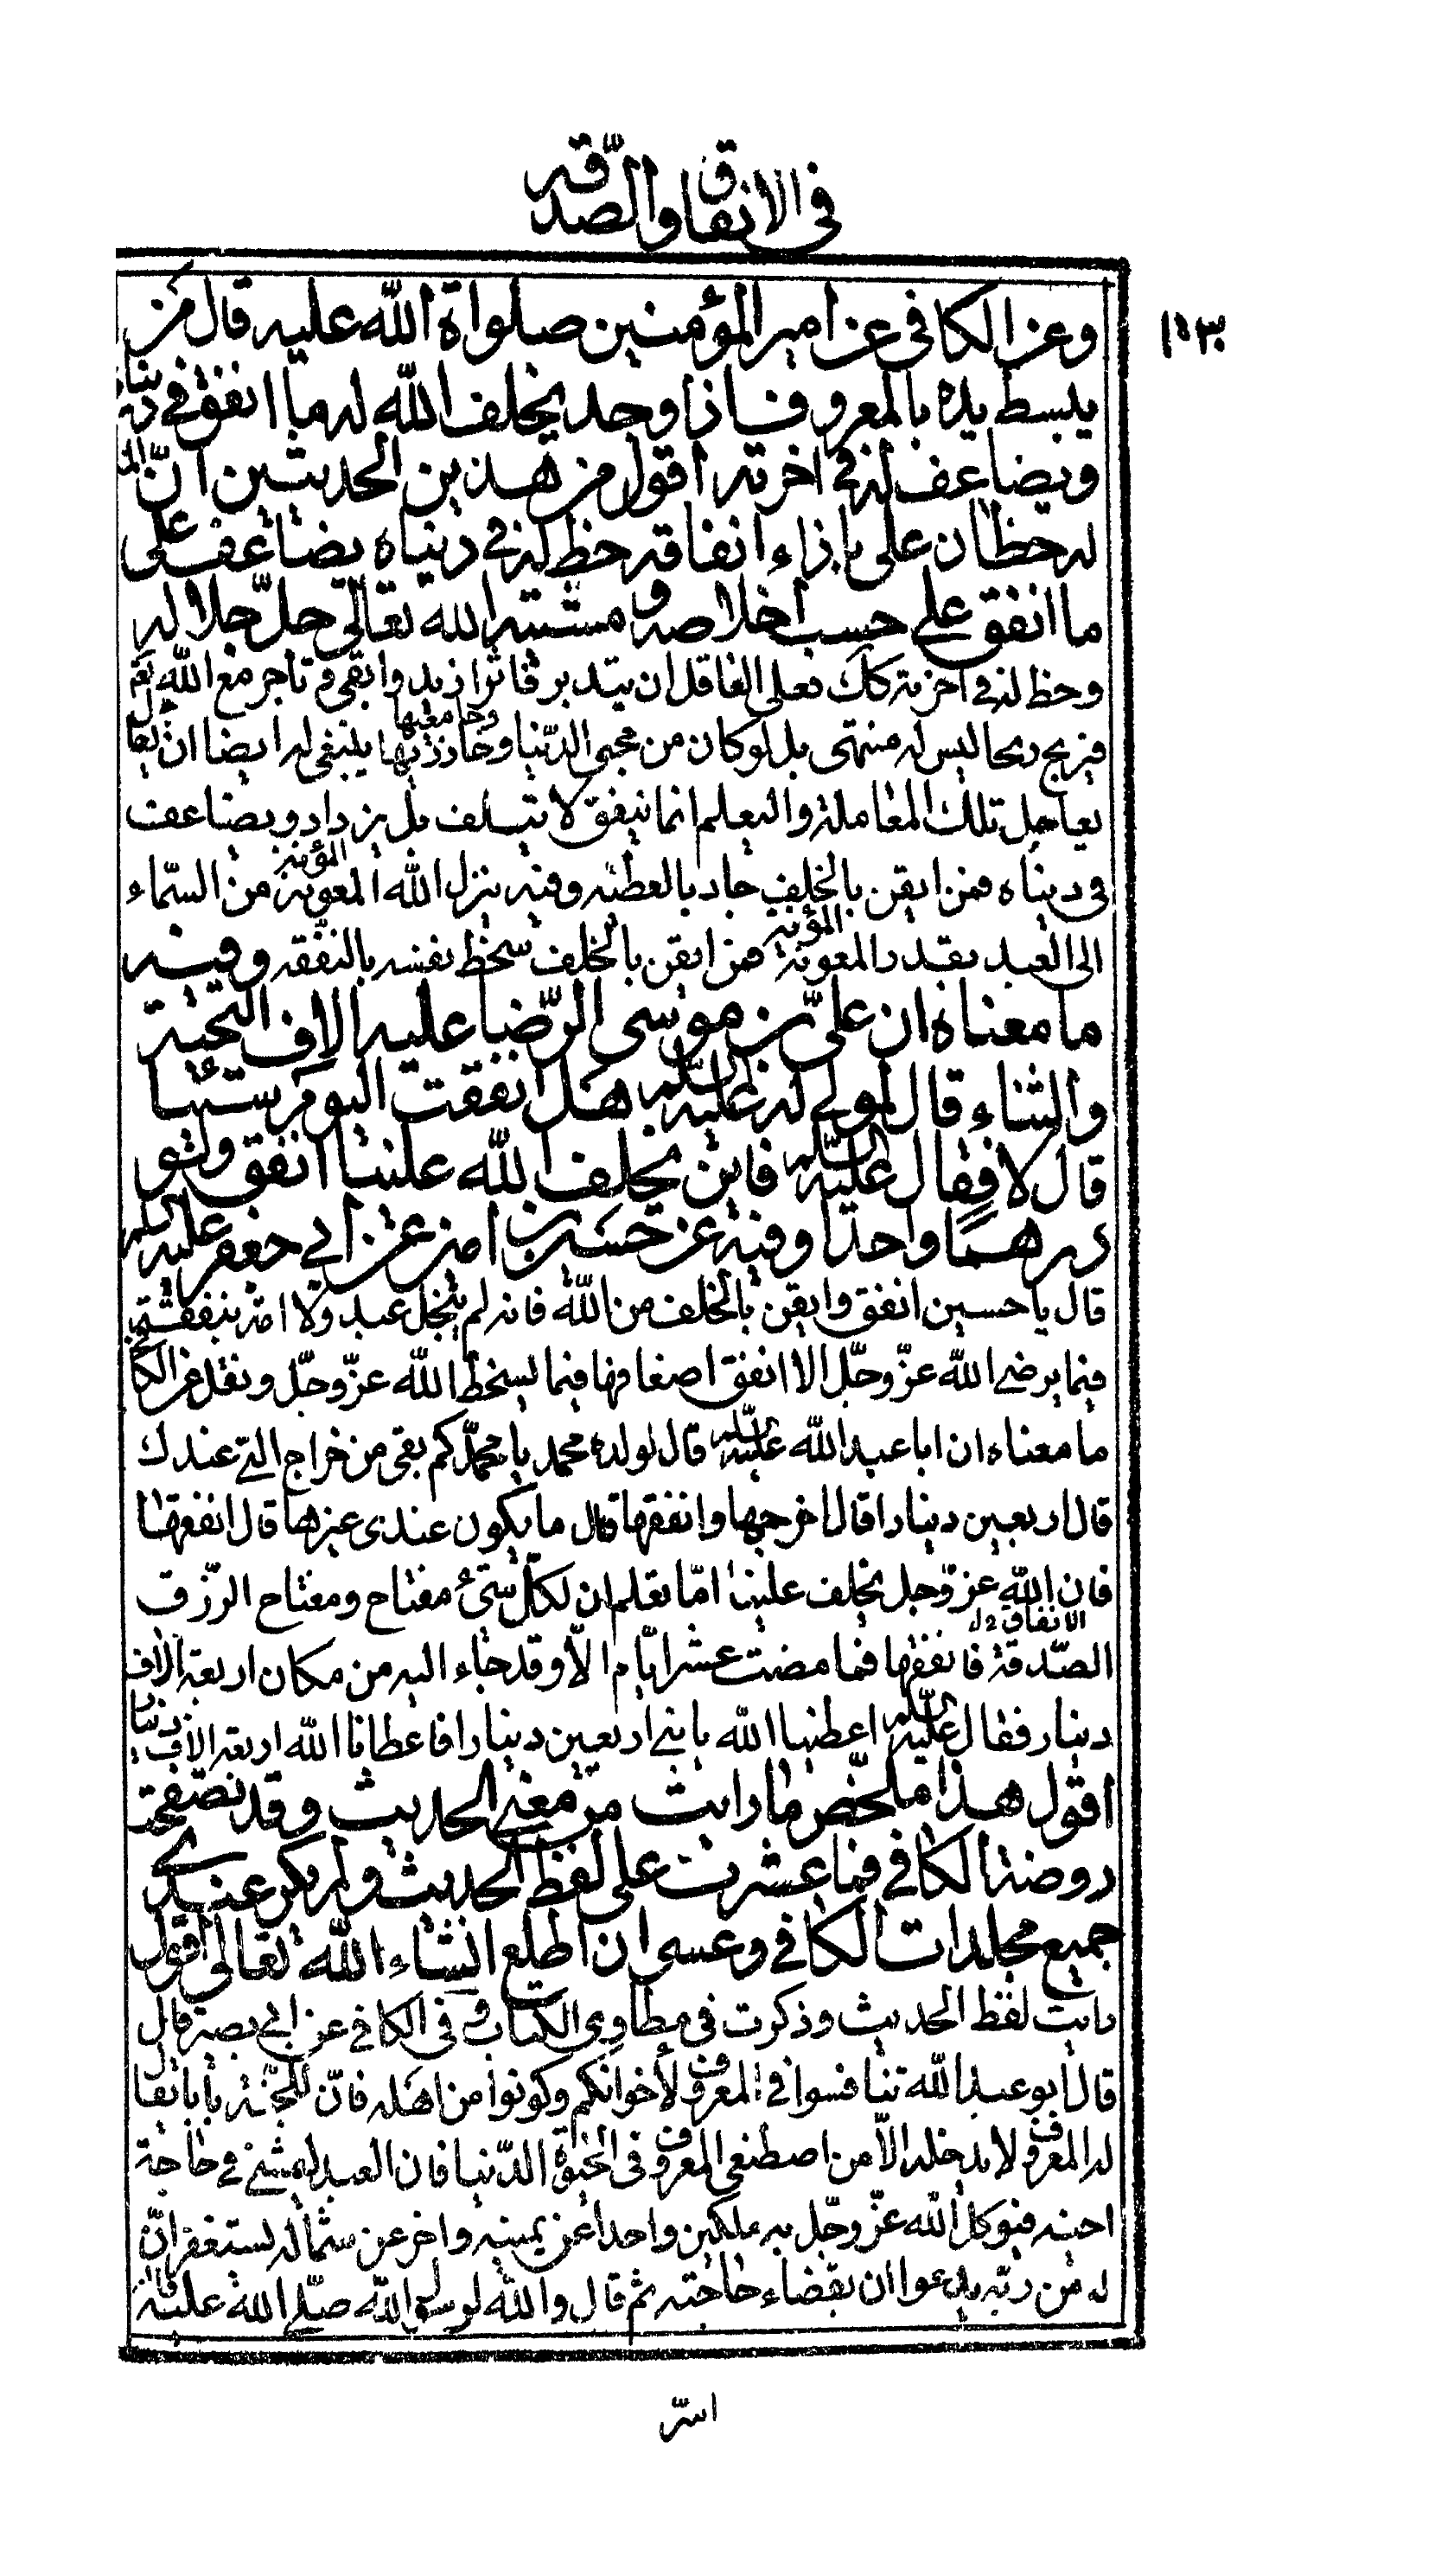 في الانفاق والصّدقه
١٩٣
وعن الكافي عن امير المؤمنين صلواة الله عليه قال من
يبسط يده بالمعروف اذا وجد يخلف الله له ما انفق في دنياه
ويضاعف له في اخرته اقول من هذين الحديثين انّ
له حظان على بازاء انفاقه حظ له في دنياه يضاعف على
ما انفق على حسب اخلاصه و الله تعالى جلّ جلاله
وحظ له في اخرته كك فعلى العاقل ان يتدبر وابقى و تاجر مع الله
فيربح ربحا ليس له منتهى بل لو كان من محبي الدّنيا ينبغي له ايضا ان
يعاجل تلك المعاملة واليعلم انما ينفق لا يتلف بل يزداد ويضاعف
في ديناه فمن ايقن بالخلف جاد بالعطيّه وفيه ينزل الله المعونة المؤنة من السّماء
الى العبد بقدر المعونة المؤنة فمن ايقن بالخلف سخط نفسه بالنفقه وفيه
ما معناه ان علي بن موسى الرّضا عليه الاف التحية
والثناء قال لمولى له عليه السّلم هل انفقت اليوم شيئا
قال لا فقال عليه السّلم فاين يخلف الله علينا انفق ولو
درهما واحدا وفيه عن حسين بن ايمن عن ابي جعفر عليه السّلم
قال يا حسين انفق وايقن بالخلف من الله فانه لم يبخل عبد ولا امة بنفقة
فيما يرضي الله عزّ وجلّ الا انفق اضعافها فيما يسخط الله عزّ وجلّ ونقل عن الكافي
ما معناه ان ابا عبد الله عليه السّلم قال لولده محمد يا محمّد كم بقي من خراج التي عندك
قال اربعين دينارا قال اخرجها وانفقها قال ما يكون عندي غيرها قال انفقها
فان الله عز وجل يخلف علينا امّا تعلم ان لكلّ شيء مفتاح ومفتاح الرّزق
الانفاق خ ل
الصّدقة فانفقها فما مضت عشر ايّام الّا وقد جاء اليه من مكان اربعة الاف
دينار فقال عليه السّلم اعطينا الله يا بني اربعين دينارا فاعطانا الله اربعة الاف دينار
اقول هذا ملخّص ما رايت من معنى الحديث وقد تصفحت
روضة الكافي فما عشرت على لفظ الحديث ولم يكن عندي
جميع مجلدات الكافي وعسى ان اطلع انشاء الله تعالى اقول
رايت لفظ الحديث وذكرت في مطاوي الكتاب و في الكافي عن ابي بصير قال
قال ابو عبد الله تنافسوا في المعروف لأخوانكم وكونوا من اهله فانّ للجنّة بابا يقال
له المعروف لا يدخله الاّ من اصطنع المعروف في الحيوة الدّنيا فان العبد ليمشي في حاجة
اخيه فيوكل الله عزّ وجلّ به ملكين واحدا عن يمينه واخر عن شماله يستغفران
له من ربّه يدعوا ان بقضاء حاجته ثم قال والله لرسول الله صلّى الله عليه واله
اسرّ